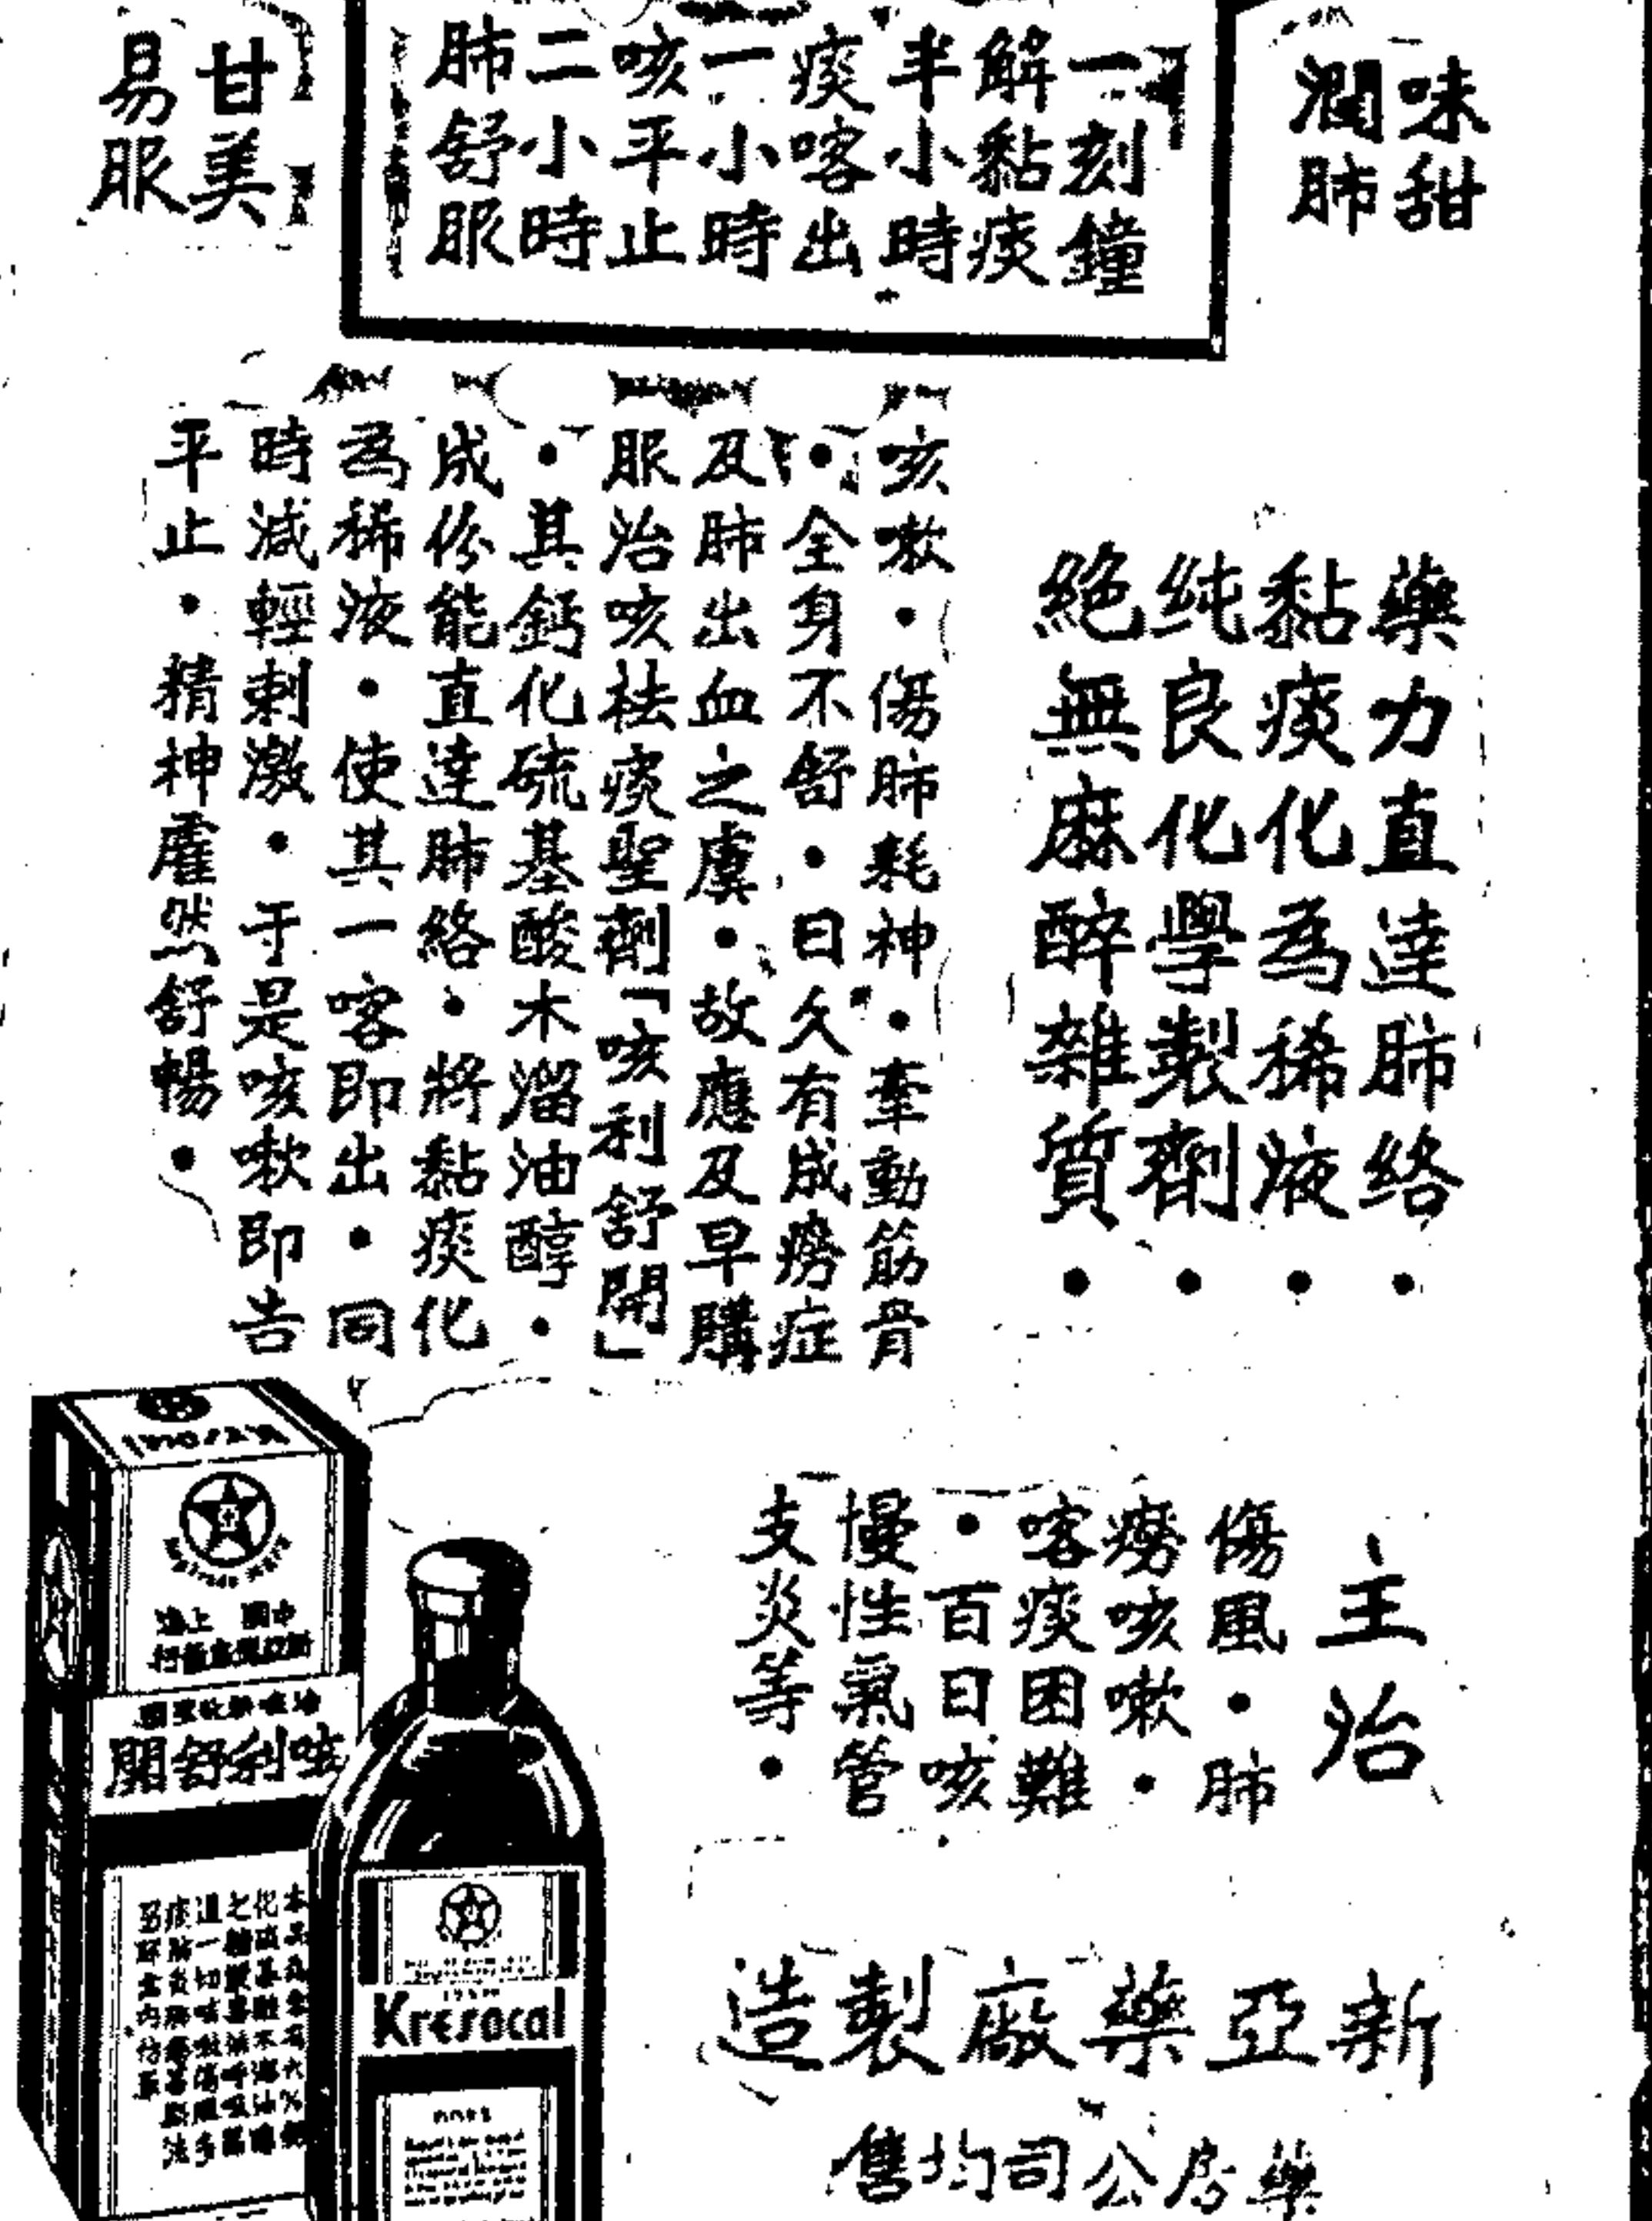 味甜
潤肺
一刻鐘
解黏痰
半小時
痰喀出
一小時
咳平止
二小時
肺舒服
甘美
易服
藥力直達肺络•
黏痰化為稀液•
纯良化學製劑•
絕無麻醉雜質•
咳嗽•傷肺耗神•牽動筋骨
•全身不舒•日久有成癆症
及肺出血之虞•故應及早購
服治咳祛痰聖劑「咳利舒開」
•其鈣化硫基酸木溜油醇•
成份能直達肺絡•將黏痰化
為稀液•使其一喀即出•同
時減輕刺激•于是咳嗽即告
平止•精神雇然舒暢•
主治
傷風•肺
癆咳嗽•
喀痰困難
•百日咳
慢性氣管
支炎等•
新亞藥廠製造
藥房公司均售
咳利舒開
Kresocal